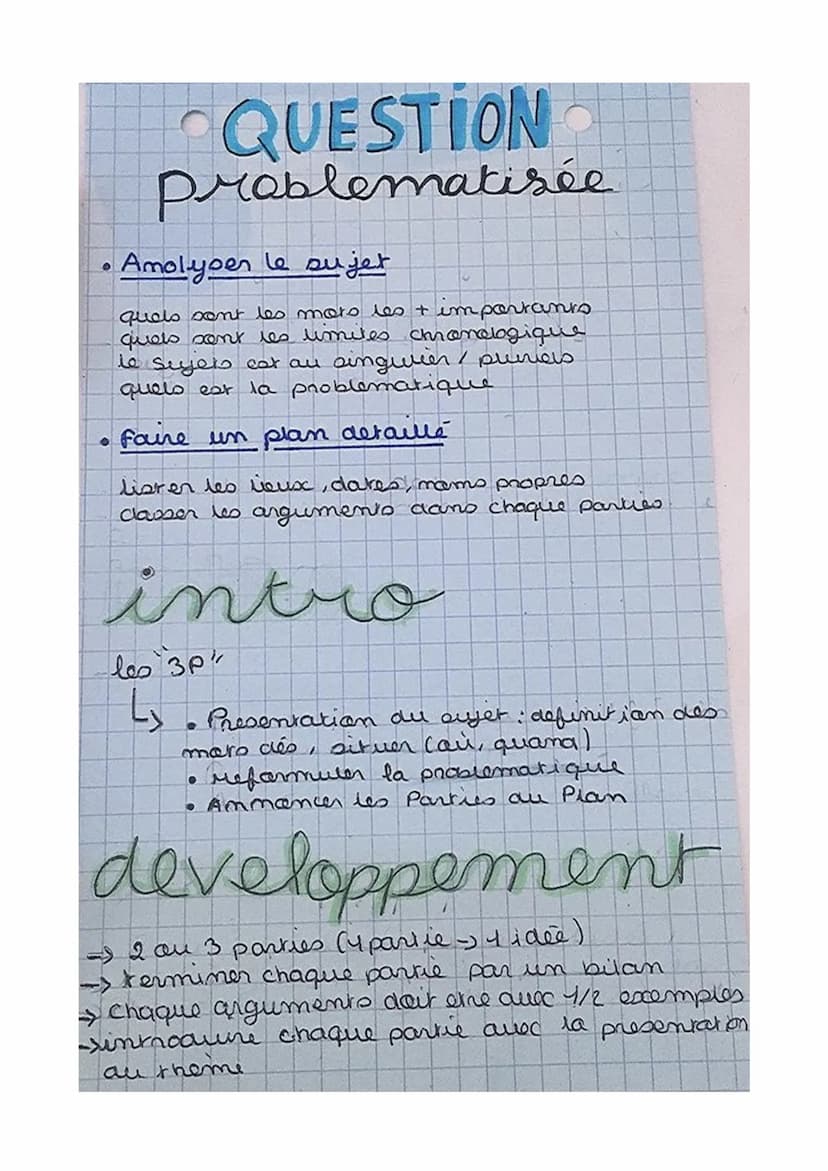 QUESTION
Problematisée
• Analyser le sujet
quels sont les mots les + importants
quels sont les limites chronologique
le sujets est au singulier / pluriels
quels est la problematique
• Faire un plan detaillé
lister les lieux, dates, noms propres
classer les arguments dans chaque parties
intro
les "3P"
↳ • Presentation du sujet : definition des
mots clés, situer (où, quand)
• Reformuler la problematique
• Annoncer les Parties du Plan
developpement
→ 2 ou 3 parties (1 partie → 1 idée)
→ terminer chaque partie par un bilan
→ chaque arguments doit etre avec 1/2 excemples
→ introduire chaque partie avec la presentation
du theme